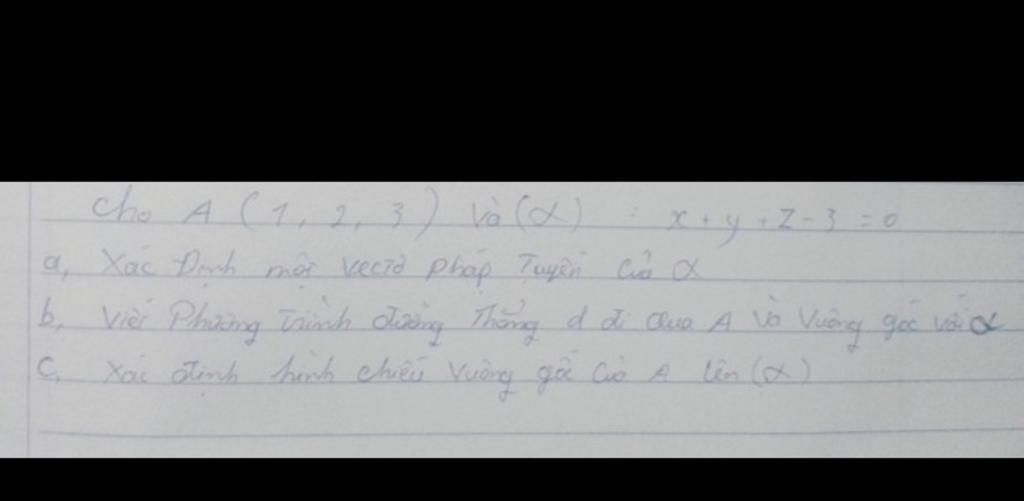 Cho A (1, 2, 3) Và (α) : x + y + z - 3 = 0
a, Xác Định một vectơ pháp Tuyến Của α
b, Viết Phương Trình đường Thẳng d đi Qua A Và Vuông góc với α
C. Xác định hình chiếu Vuông góc Của A lên (α)